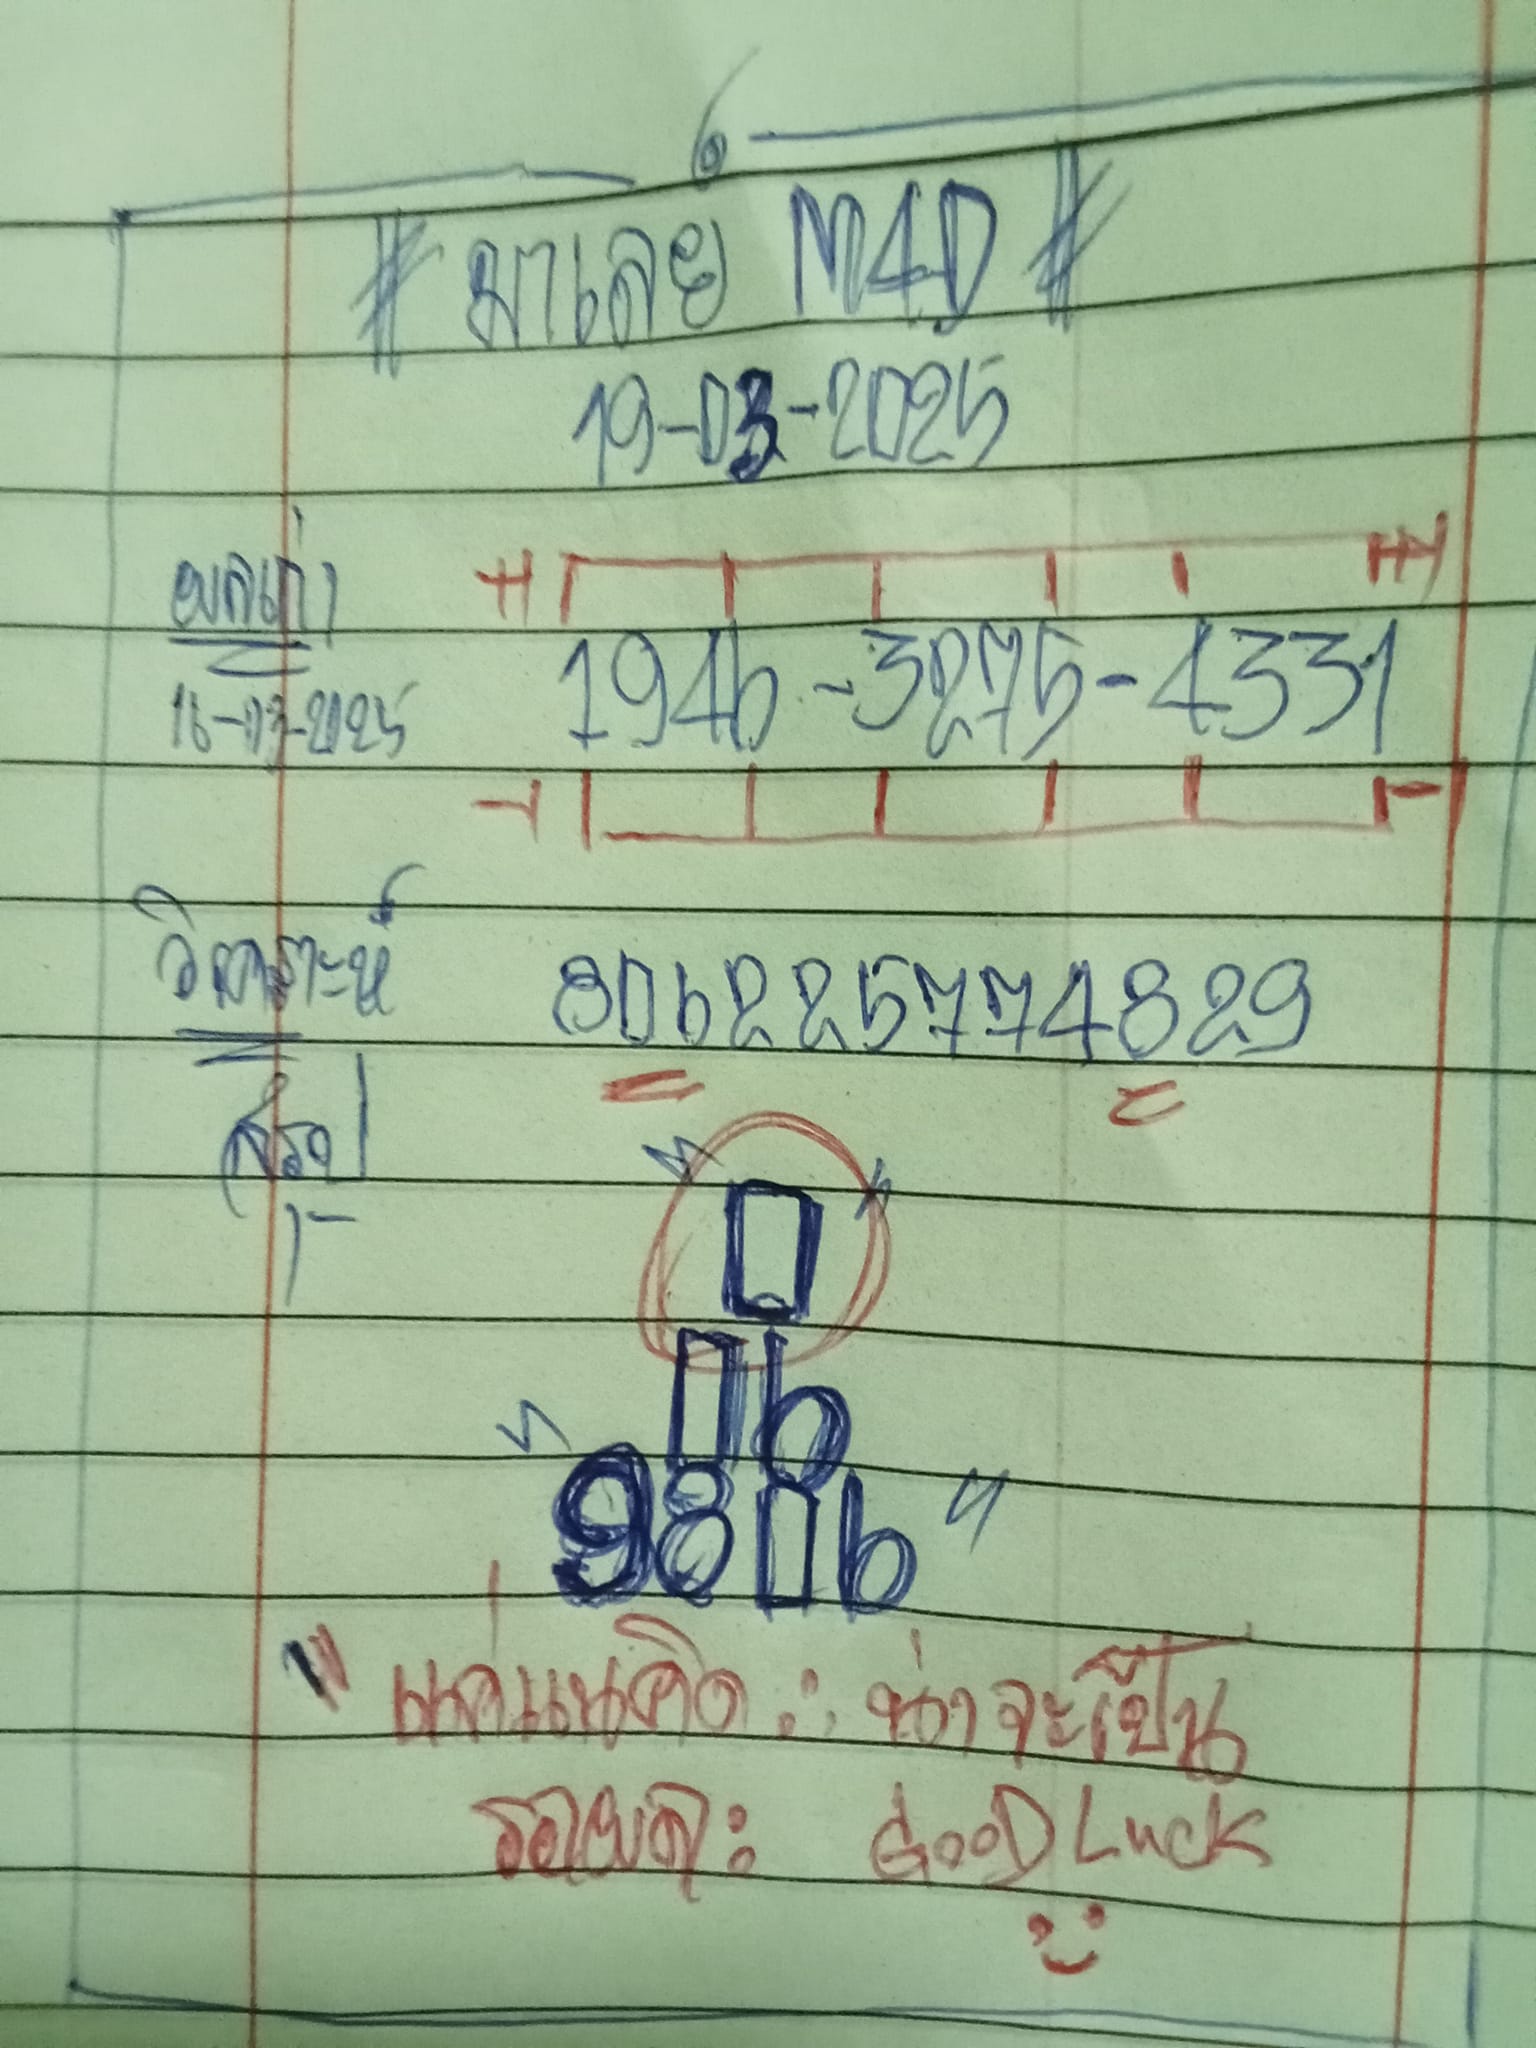 # มาเลย M4D #
19-03-2025
ผลเก่า 1946 - 3275 - 4331
16-03-2025
วิเคราะห์ 806225774829
สรุป
0
06
9806
" แค่แนคิด : น่าจะเป็น
รอผล : GOOD Luck